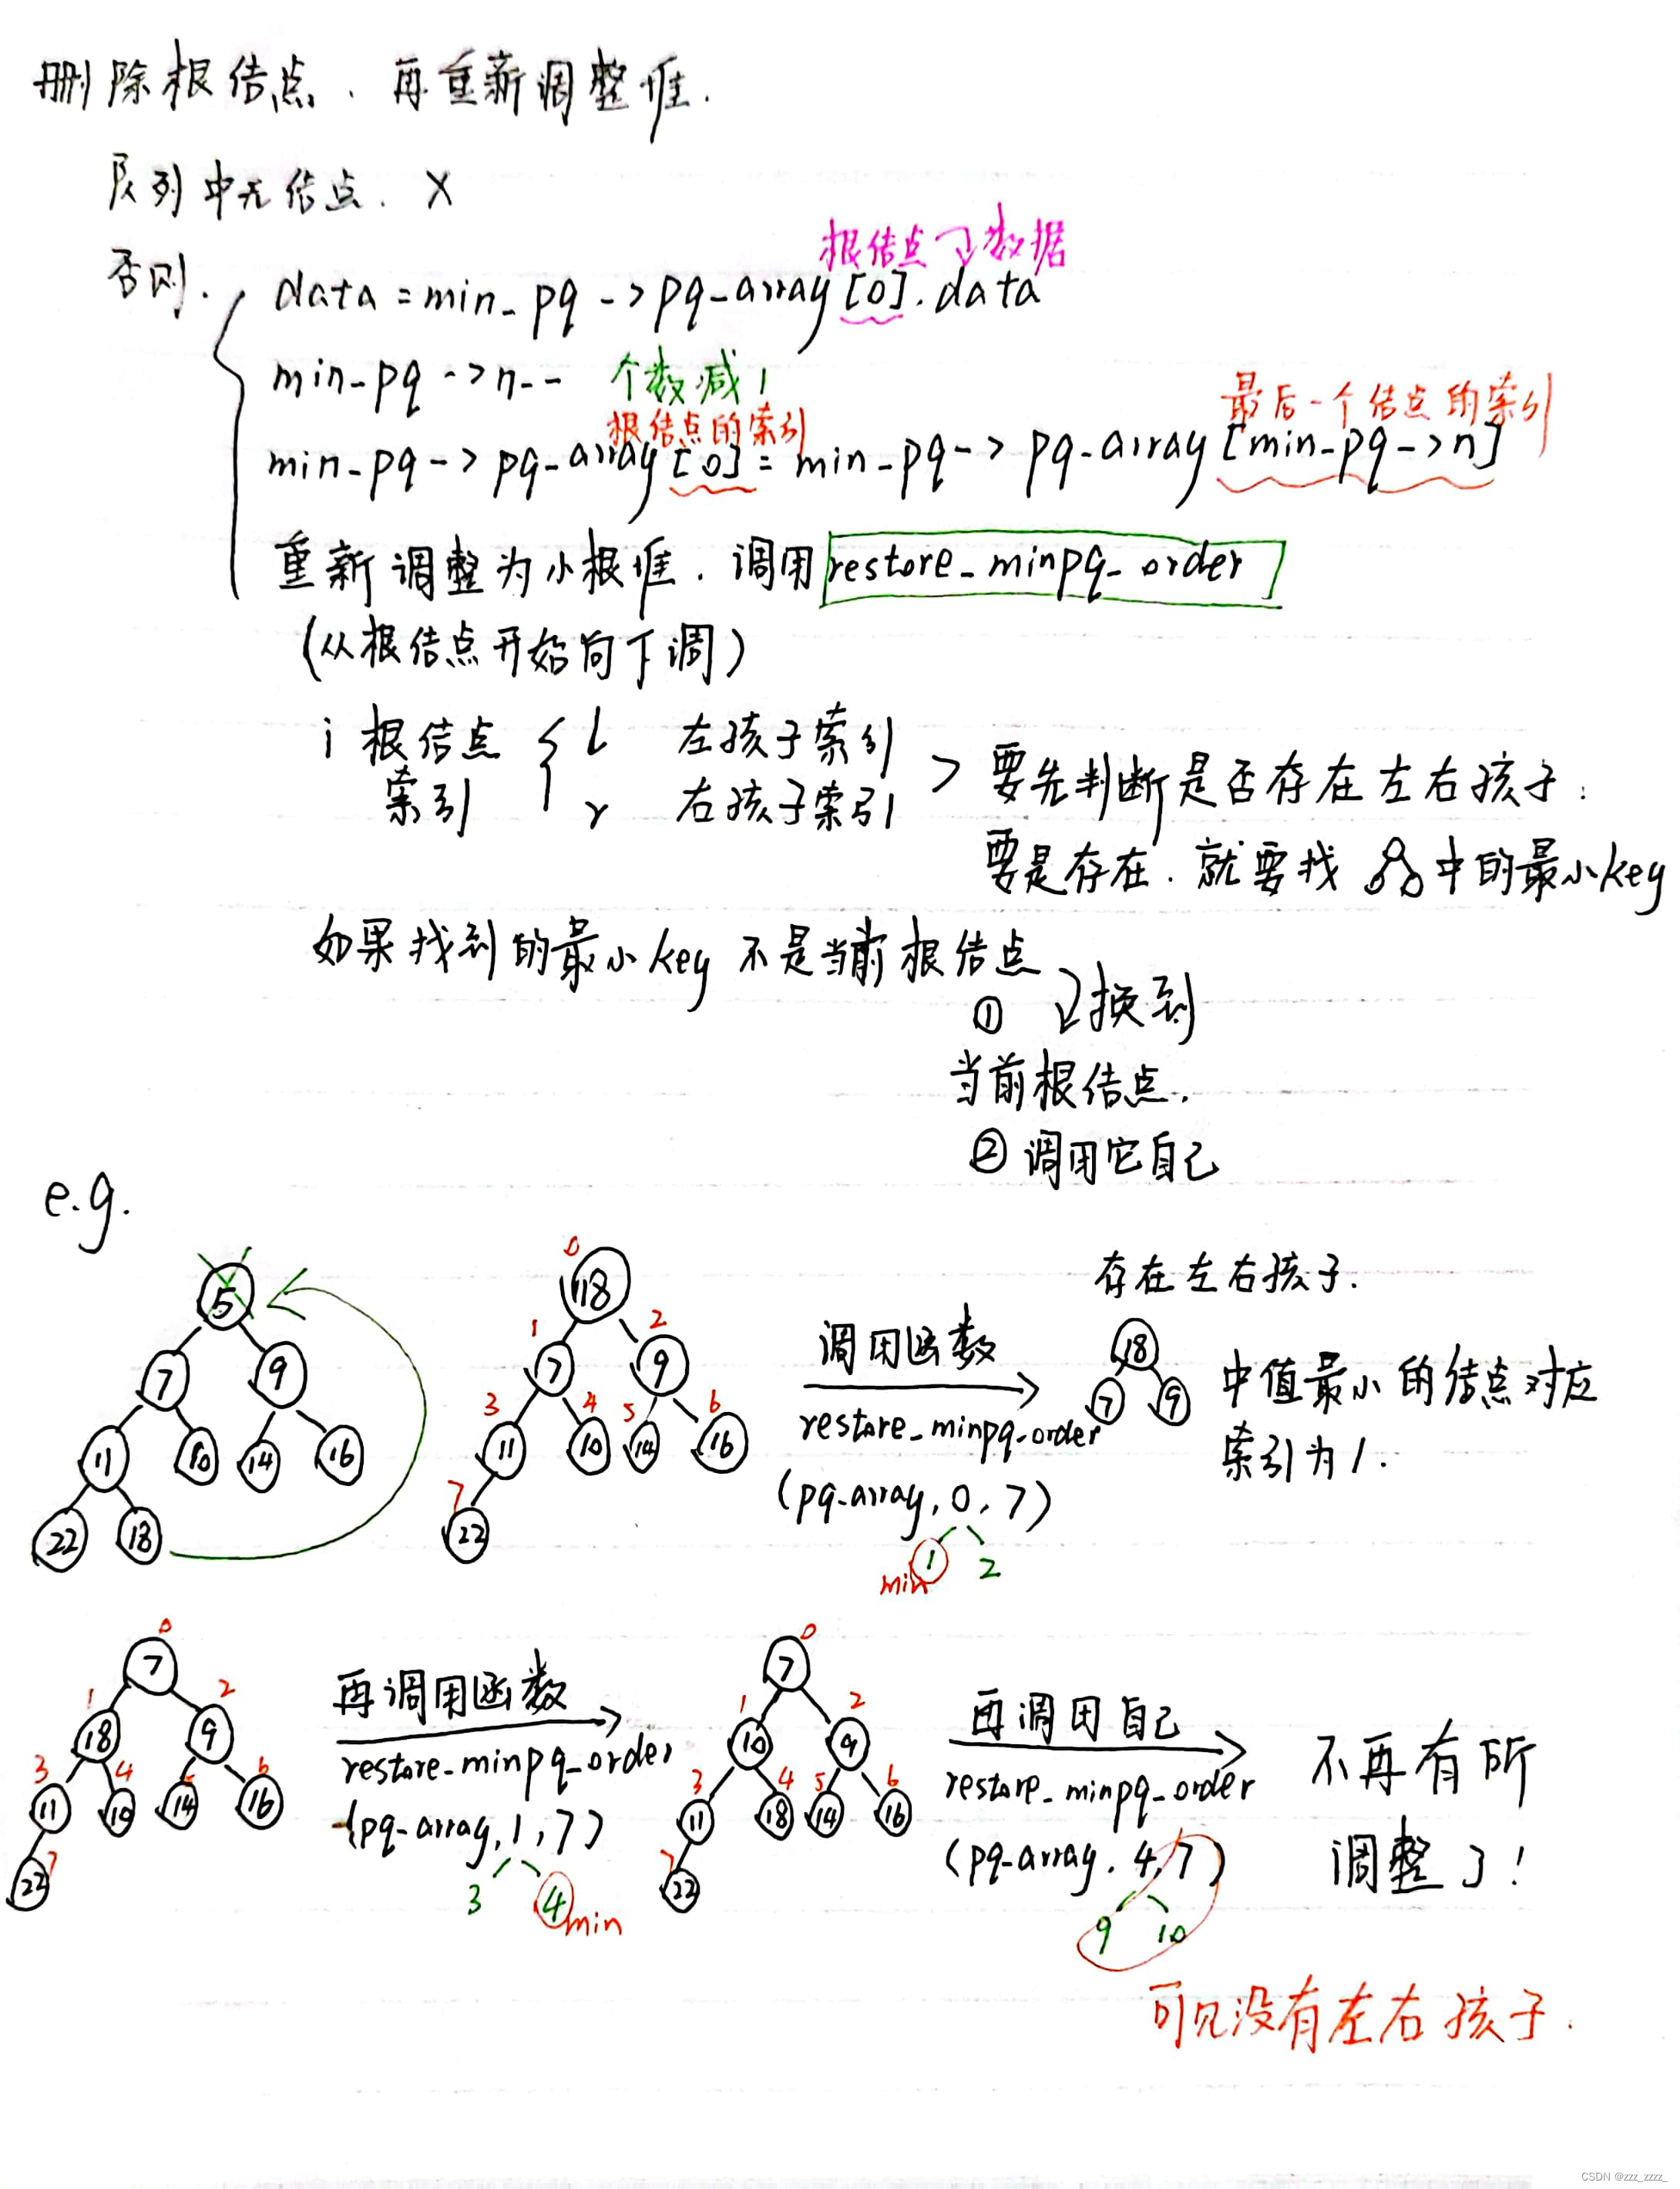 删除根结点.再重新调整堆.
队列中无结点. X
根结点的数据
否则. data = min_pq -> pq_array[0].data
min_pq -> n-- 个数减1
根结点的索引 最后一个结点的索引
min_pq -> pq_array[0] = min_pq -> pq_array[min_pq->n]
重新调整为小根堆.调用restore_minpq_order
(从根结点开始向下调)
i 根结点 l 左孩子索引
索引 r 右孩子索引 > 要先判断是否存在左右孩子:
要是存在.就要找 中的最小key
如果找到的最小key 不是当前根结点
① 换到
当前根结点.
② 调用它自己
e.g.
5
7 9
11 10 14 16
22 18
0
18
1 2
7 9
3 4 5 6
11 10 14 16
7
22
调用函数
restore_minpq_order
(pq_array, 0, 7)
1 2
min
存在左右孩子.
18
7 9
中值最小的结点对应
索引为1.
0
7
1 2
18 9
3 4 5 6
11 10 14 16
7
22
再调用函数
restore_minpq_order
(pq_array, 1, 7)
3 4 min
0
7
1 2
10 9
3 4 5 6
11 18 14 16
7
22
再调用自己
restore_minpq_order
(pq_array, 4, 7)
9 10
不再有所
调整了!
可见没有左右孩子.
CSDN @zzz_zzzz_